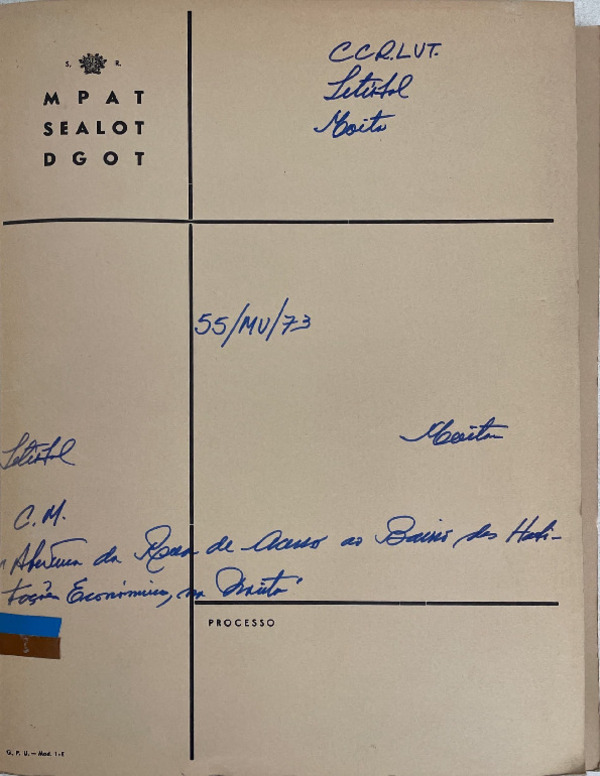 S. R.
MPAT
SEALOT
DGOT
C C R.LVT.
Setúbal
Moita
55/MU/73
Moita
Setúbal
C. M.
"Abertura da Rua de Acesso ao Bairro das Habi-
tações Económicas, na Moita"
PROCESSO
G. P. U. — Mod. 1-E